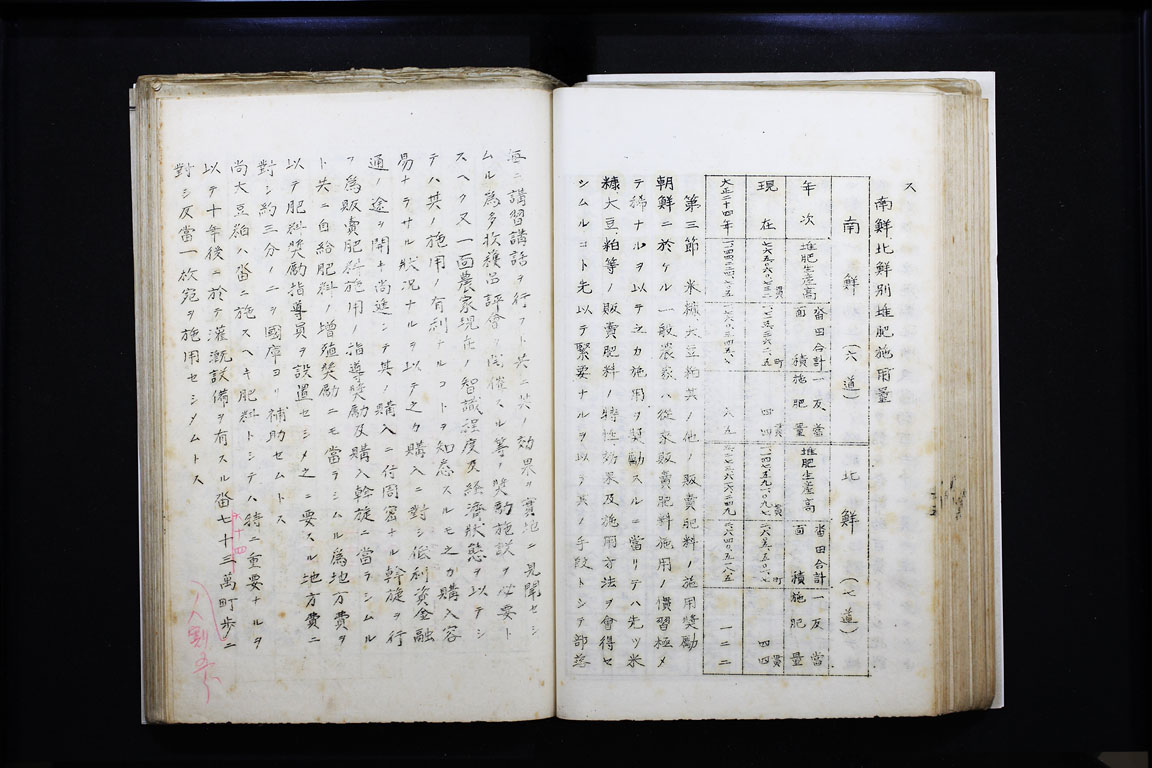 ス
南鮮北鮮別堆肥施用量
南鮮(六道)
北鮮(七道)
年次
堆肥生産高
畓田合計面積
一反当施肥量
堆肥生産高
畓田合計面積
一反当施肥量
現在
貫
町
四四貫
貫
町
四四貫
大正二十四年
八五
一二二
第三節 米糠大豆粕其ノ他ノ販賣肥料ノ施用奨勵
朝鮮ニ於ケル一般農家ハ從来販賣肥料施用ノ慣習極メ
テ稀ナルヲ以テ之カ施用ヲ奨勵スルニ當リテハ先ツ米
糠、大豆粕等ノ販賣肥料ノ特性効果及施用方法ヲ會得セ
シムルコト先以テ緊要ナルヲ以テ其ノ手段トシテ部落
毎ニ講習講話ヲ行フト共ニ其ノ効果ヲ實地ニ見聞セシ
ムル為多收穫品評會ヲ開催スル等ノ奨勵施設ヲ必要ト
スヘク又一面農家現在ノ智識程度及経濟状態ヲ以テシ
テハ其ノ施用ノ有利ナルコトヲ知悉スルモ之カ購入容
易ナラサル状況ナルヲ以テ之カ購入ニ對シ低利資金融
通ノ途ヲ開キ尚進ンテ其ノ購入ニ付周密ナル幹旋ヲ行
フ為販賣肥料施用ノ指導奨勵及購入幹旋ニ當ラシムル
ト共ニ自給肥料ノ増殖奨勵ニモ當ラシムル為地方費ヲ
以テ肥料奨勵指導員ヲ設置セシメ之ニ要スル地方費ニ
對シ約三分ノ二ヲ國庫ヨリ補助セムトス
尚大豆粕ハ畓ニ施スヘキ肥料トシテハ特ニ重要ナルヲ
以テ十年後ニ於テ灌漑設備ヲ有スル畓七十三萬町歩ニ
六十四
對シ反當一枚宛ヲ施用セシメムトス